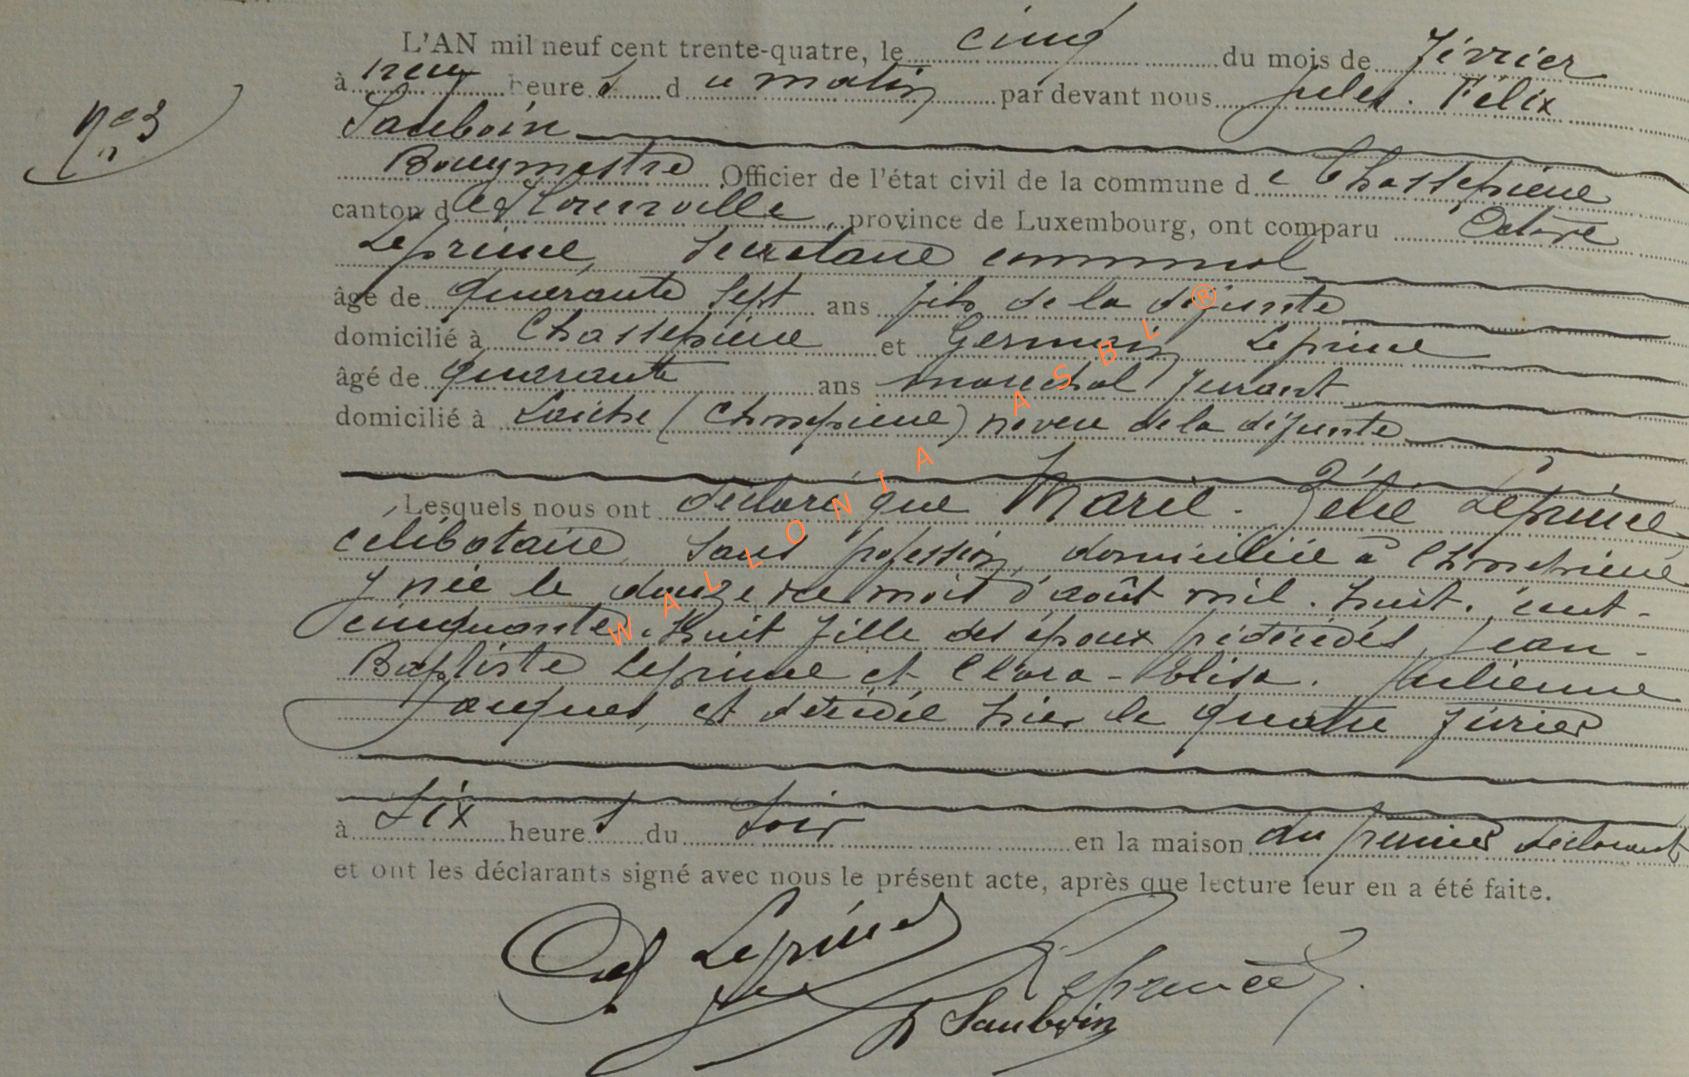 L'AN mil neuf cent trente-quatre, le cinq du mois de février
à neuf heures du matin par devant nous Jules. Félix
n°3
Sauboin
Bourgmestre Officier de l'état civil de la commune de Chassepierre
canton de Florenville, province de Luxembourg, ont comparu Octave
Leprince, secrétaire communal
âgé de quarante sept ans fils de la défunte
domicilié à Chassepierre et Germain Leprince
âgé de quarante ans maréchal ferrant
domicilié à Laiche (Chassepierre) neveu de la défunte
Lesquels nous ont déclaré que Marie. Zélie Leprince
célibataire, sans profession, domiciliée à Chassepierre
y née le douze du mois d'août mil. huit. cent-
cinquante. huit fille des époux prédécédés, Jean-
Baptiste Leprince et Clara-Elisa. Julienne
Jacques, et décédée hier le quatre février
à six heures du soir en la maison du premier déclarant
et ont les déclarants signé avec nous le présent acte, après que lecture leur en a été faite.
Leprince
Leprince G.
J Sauboin
WALLONIA ASBL ®